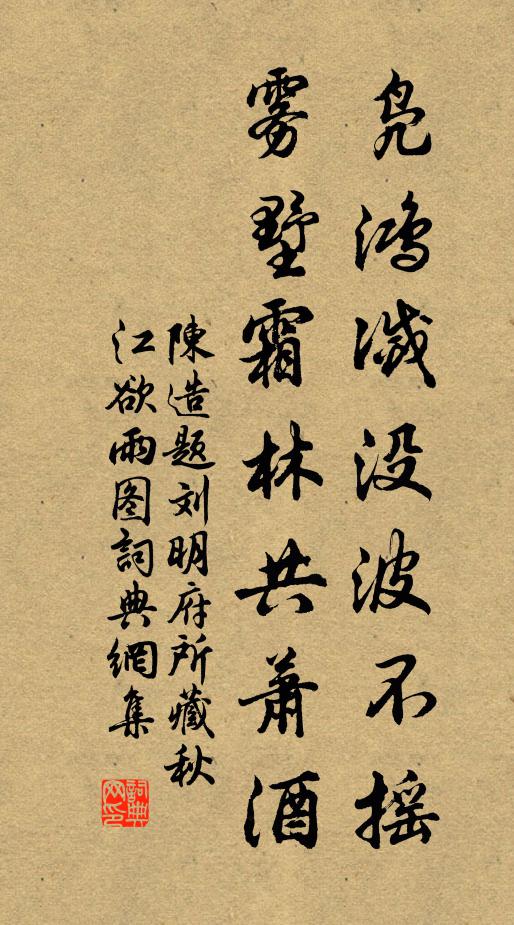 凫鸿滅没波不摇
雾墅霜林共萧酒
陳造题刘明府所藏秋
江欲雨图詞典網集
詞典网印